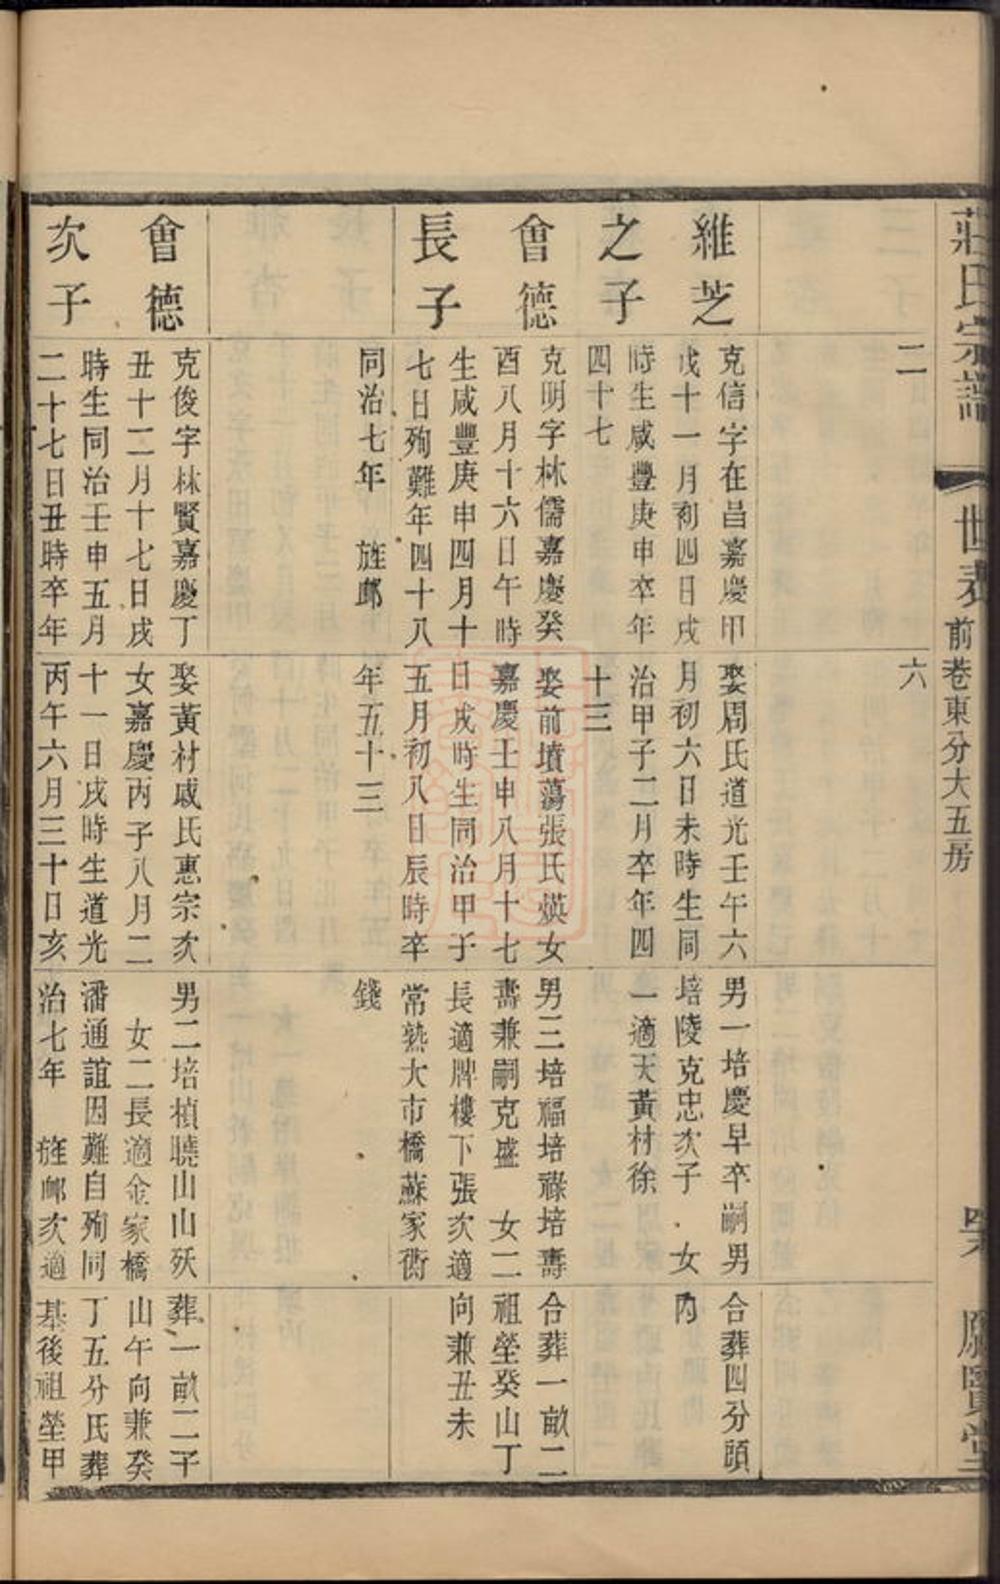 莊氏宗譜
世表
前巷東分大五房
二
六
維芝
之子
克信字在昌嘉慶甲
戌十一月初四日戌
時生咸豐庚申卒年
四十七
娶周氏道光壬午六
月初六日未時生同
治甲子二月卒年四
十三
男一培慶早卒嗣男
培陵克忠次子 女
一適天黃材徐
合葬四分頭
內
會德
長子
克明字林儒嘉慶癸
酉八月十六日午時
生咸豐庚申四月十
七日殉難年四十八
同治七年 旌卹
娶前墳蕩張氏煐女
嘉慶壬申八月十七
日戌時生同治甲子
五月初八日辰時卒
年五十三
男三培福培祿培壽
壽兼嗣克盛 女二
長適牌樓下張次適
常熟大市橋蘇家衖
錢
合葬一畝二
祖塋癸山丁
向兼丑未
會德
次子
克俊字林賢嘉慶丁
丑十二月十七日戌
時生同治壬申五月
二十七日丑時卒年
娶黃材戚氏惠宗次
女嘉慶丙子八月二
十一日戌時生道光
丙午六月三十日亥
男二培楨曉山山殀
女二長適金家橋
潘通誼因難自殉同
治七年 旌卹次適
葬一畝二子
山午向兼癸
丁五分氏葬
基後祖塋甲